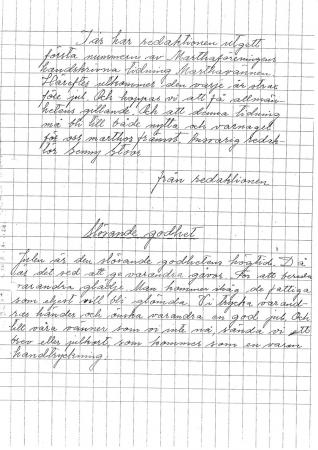 I år har redaktionen utgett
första nummern av Marthaföreningens
handskrivna tidning Marthavännen.
Härefter utkommer den varje år strax
före jul. Och hoppas vi att få allmän-
hetens gillande. Och att denna tidning
må bli till både nytta och
för oss marthor främst. Ansvarig redak-
tör Jenny
från redaktionen
godhet
Julen är den godhetens högtid. Då
är det sed att ge varandra gåvor. För att bereda
varandra glädje. Man kommer ihåg de fattiga
som ekest vill bli glömda. Vi trycka varand-
ras händer och önska varandra en god jul. Och
till våra vänner som vi inte nå, sända vi ett
brev eller julkort som kommer som en varm
handtryckning.